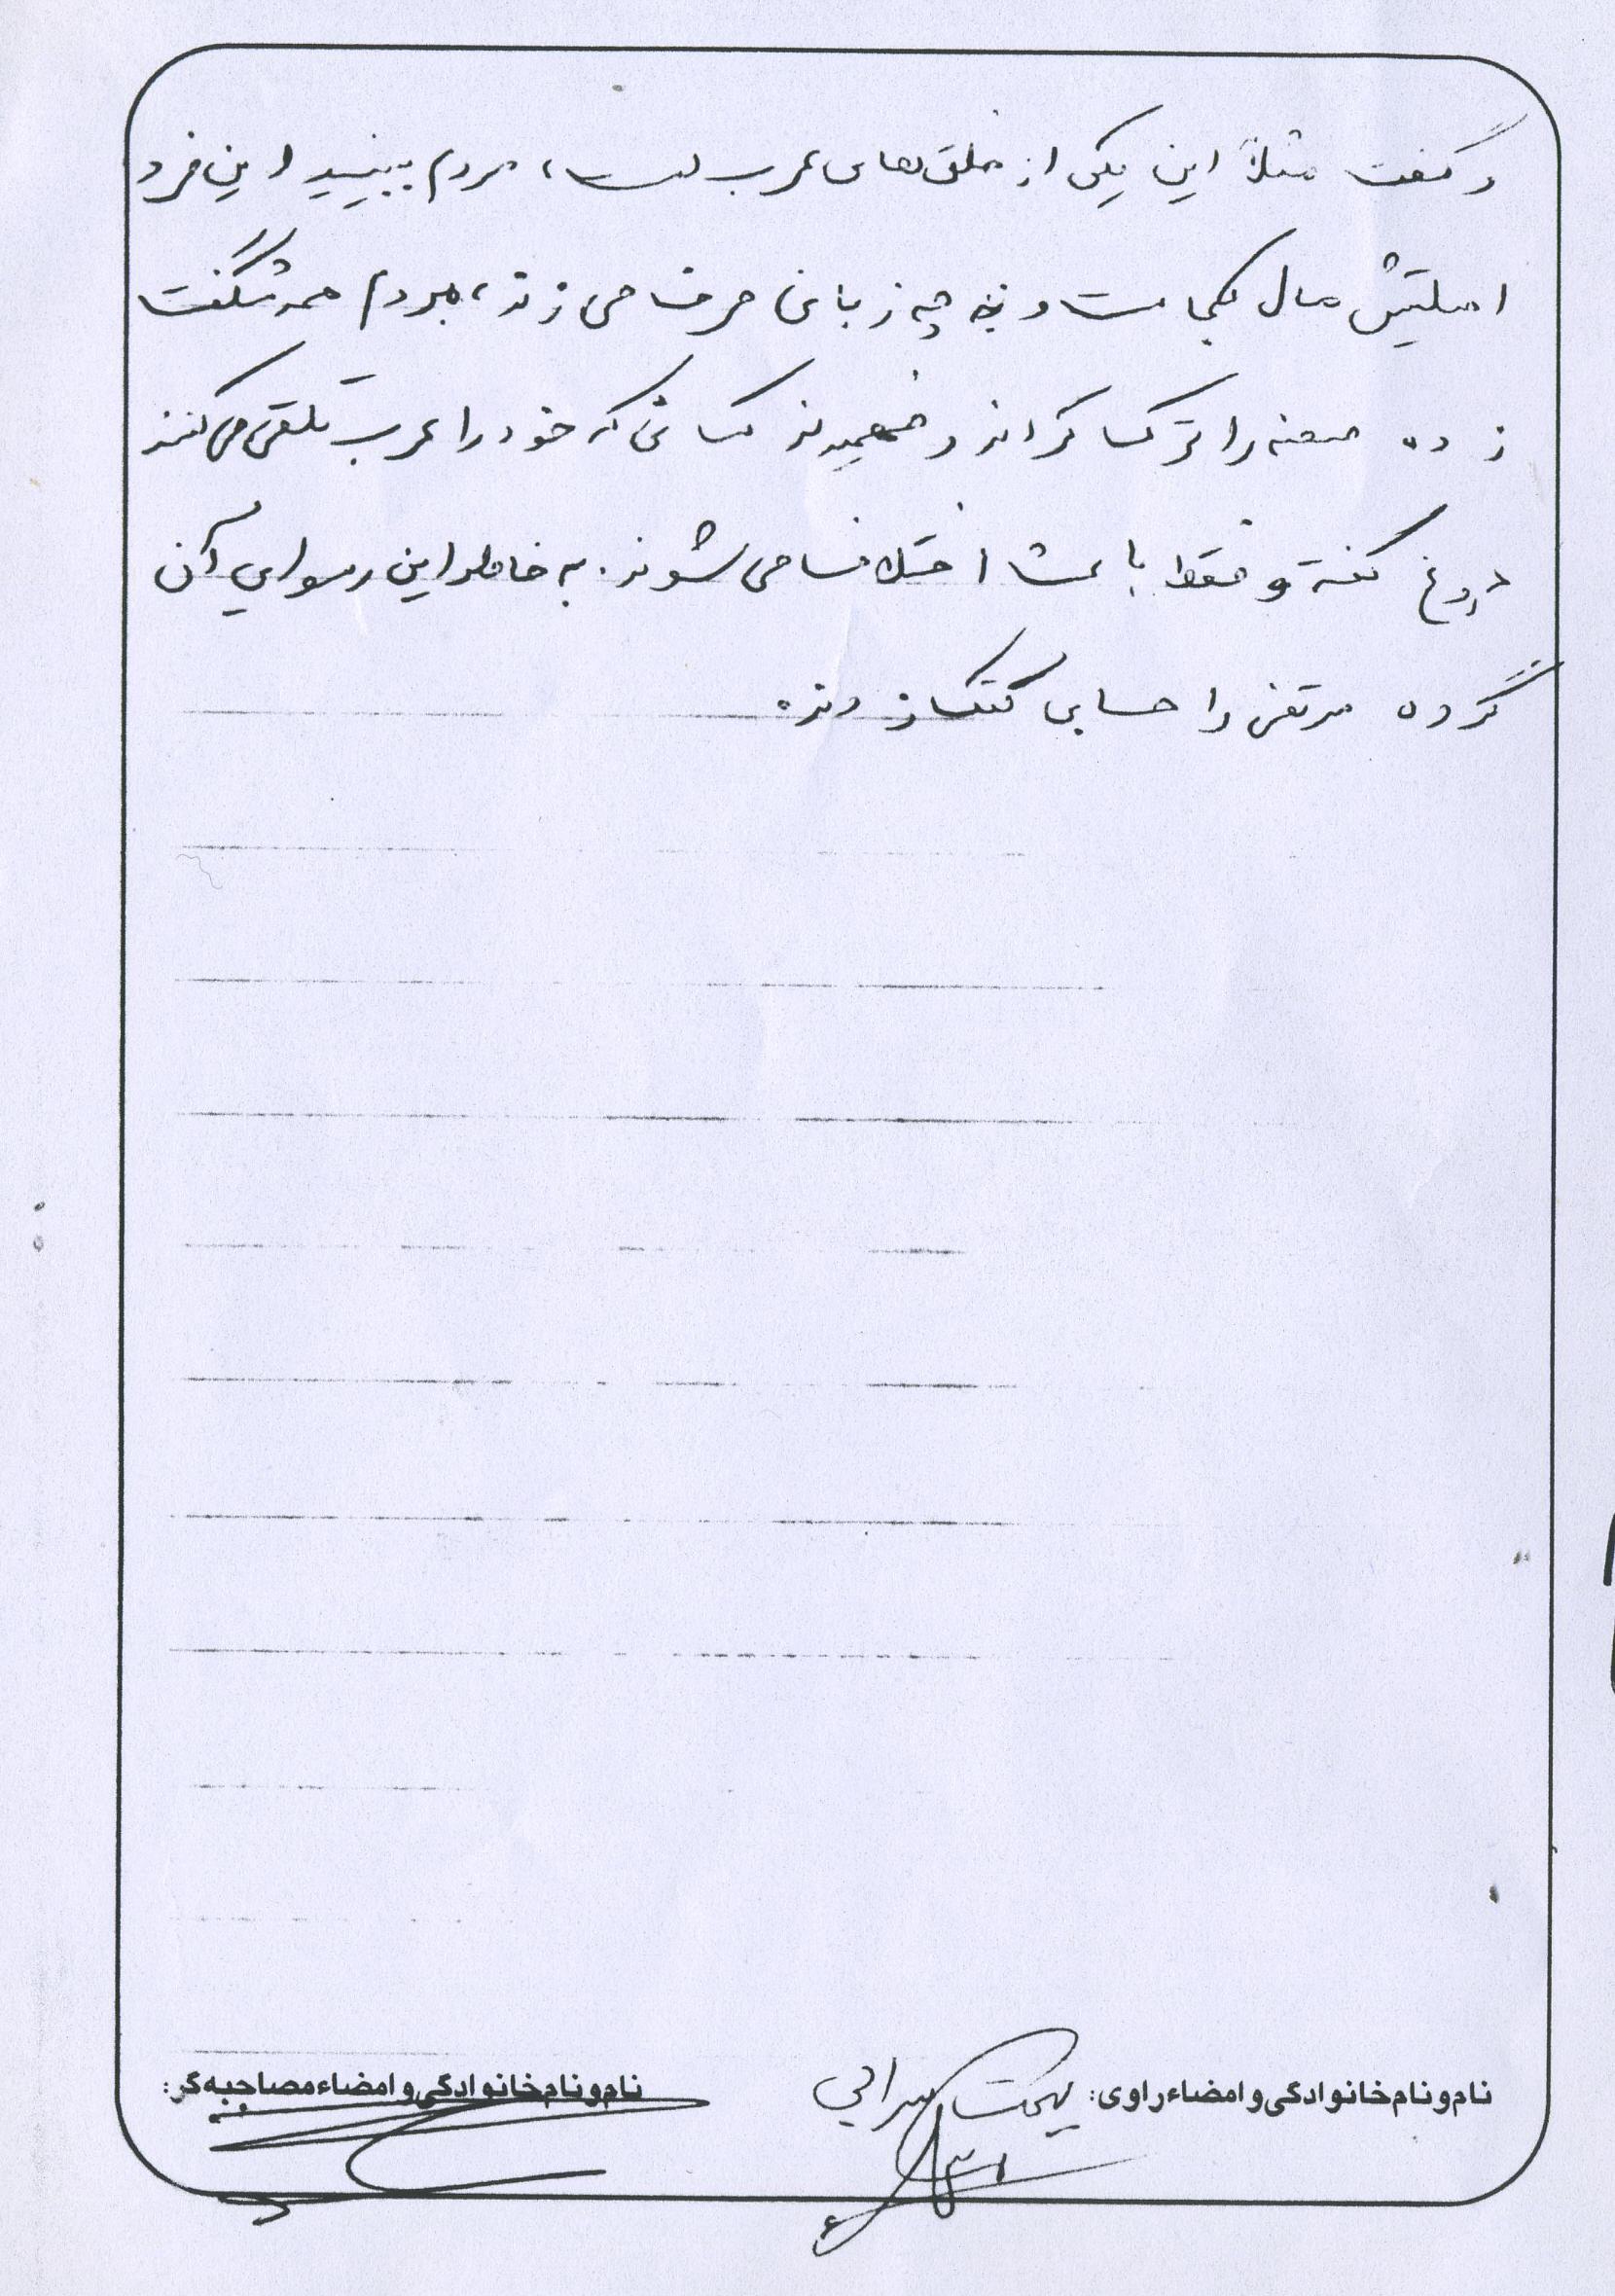 و گفت مثلاً این یکی از خلق‌های عرب است، مردم ببینید این فرد
اصلیتش مال کجاست و به چه زبانی حرف می زند، مردم همه شگفت
زده صحنه را ترک کردند و فهمیدند کسانی که خود را عرب تلقی می کنند
دروغ گفته و فقط باعث اختلاف می شوند. به خاطر این رسوایی آن
گروه مرتضی را حسابی کتک زدند.
نام و نام خانوادگی و امضاء راوی:
نام و نام خانوادگی و امضاء مصاحبه گر: